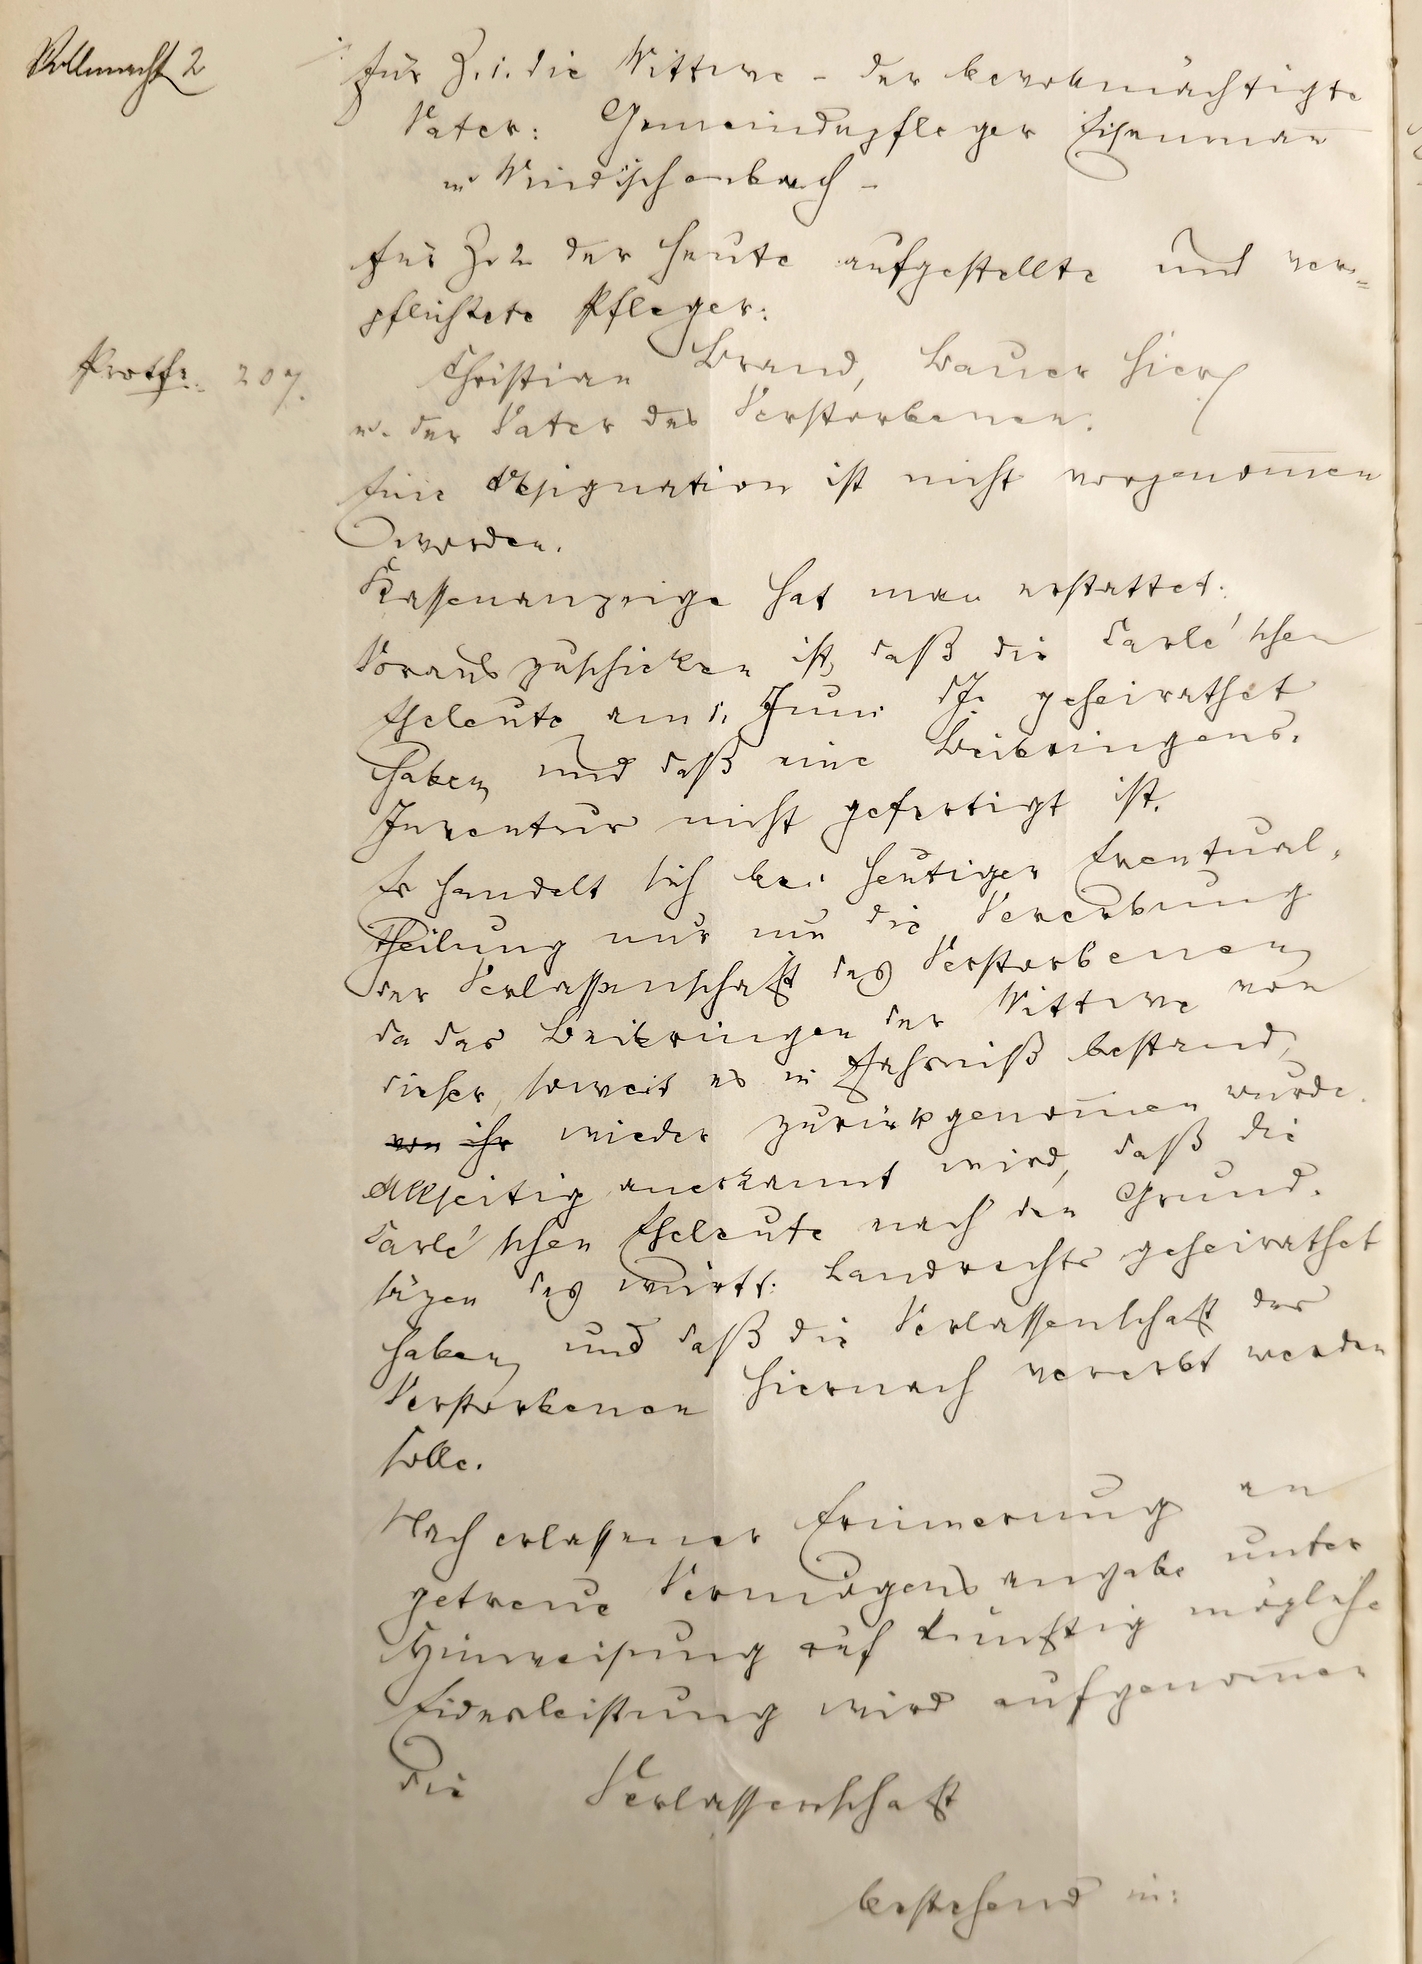 Vollmacht 2
für Z. 1. die Wittwe - der bevollmächtigte
Vater: Gemeindepfleger Eisenmann
in Windischenbach -
für Z. 2 der heute aufgestellte und ver-
pflichtete Pfleger:
Protfr. 207.
Christian Brand, Bauer hier
u. der Vater des Verstorbenen.
Eine Obsignation ist nicht vorgenommen
worden.
Kassenanzeige hat man erstattet.
Vorauszuschicken ist, daß die Carle'schen
Eheleute am 1. Juni dJ. geheirathet
haben, und daß eine Beibringens-
Inventur nicht gefertigt ist.
Es handelt sich bei heutiger Eventual-
theilung nur um die Vererbung
der Verlassenschaft des Verstorbenen,
da das Beibringen der Wittwe von
dieser, soweit es in Fahrniß bestand,
von ihr wieder zurückgenommen wurde.
Allseitig anerkannt wird, daß die
Carle'schen Eheleute nach den Grund-
säzen des württ. Landrechts geheirathet
haben, und daß die Verlassenschaft des
Verstorbenen hiernach vererbt werden
solle.
Nach erlassener Erinnerung an
getreue Vermögensangabe unter
Hinweisung auf künftig mögliche
Eidesleistung wird aufgenommen
die Verlassenschaft
bestehend in: